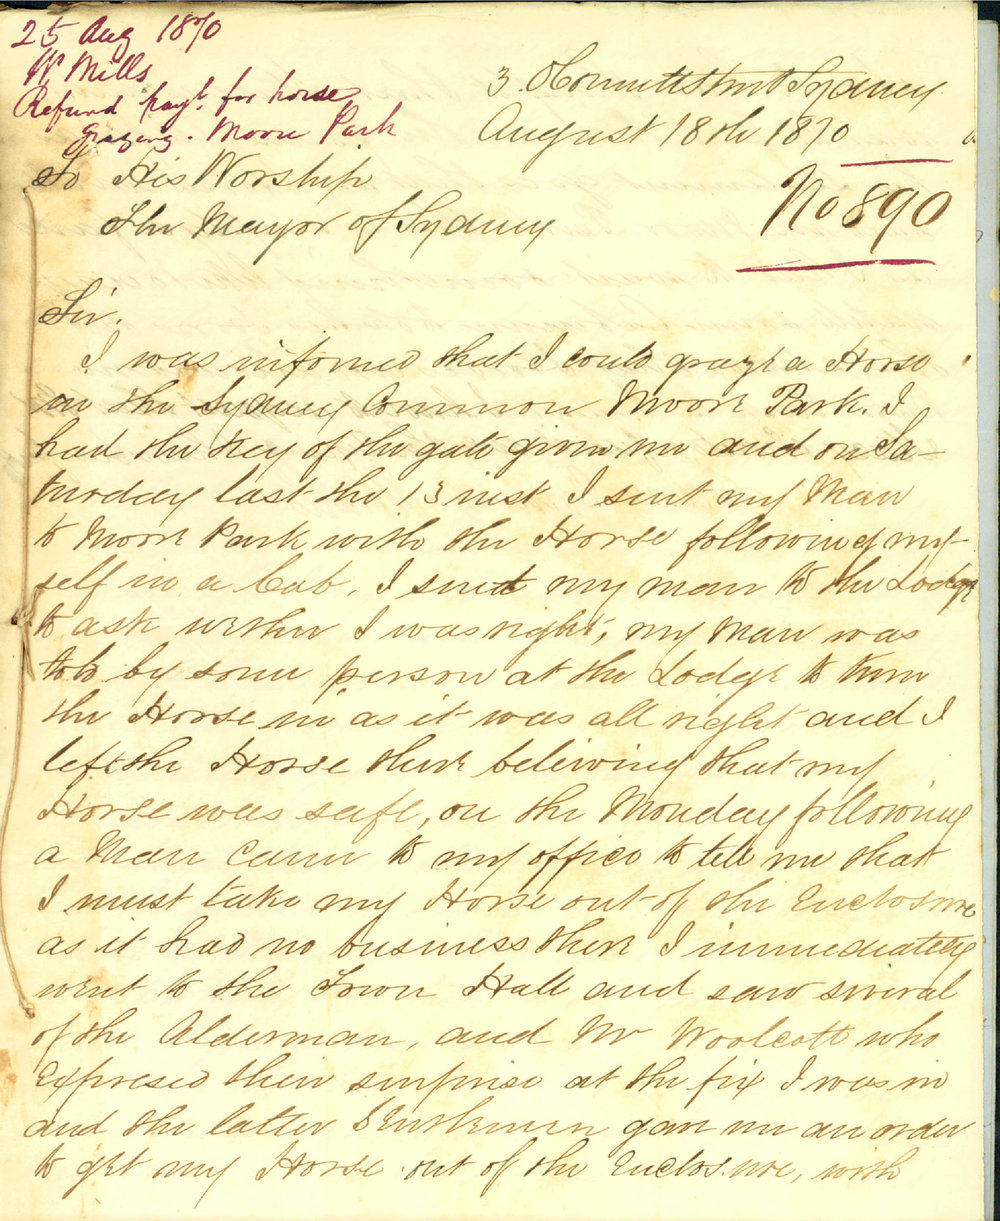 25 Aug 1870
W. Mills
Refund payt. for horse
grazing. Moore Park
3. O'Connell Street Sydney
August 18th 1870
No 890
To His Worship
The Mayor of Sydney
Sir.
I was informed that I could graze a Horse
on the Sydney Common Moore Park. I
had the Key of the gate given me and on Sa-
turday last the 13 inst I sent my Man
to Moore Park with the Horse following my-
self in a Cab, I sent my man to the Lodge
to ask wether I was right, my Man was
told by some person at the Lodge to turn
the Horse in as it was all right and I
left the Horse there beleiving that my
Horse was safe, on the Monday following
a Man came to my office to tell me that
I must take my Horse out of the Enclosure
as it had no business there I immediately
went to the Town Hall and saw several
of the Alderman, and Mr Woolcott who
Expresed their surprise at the fix I was in
and the latter Gentleman gave me an order
to get my Horse out of the Enclosure, with